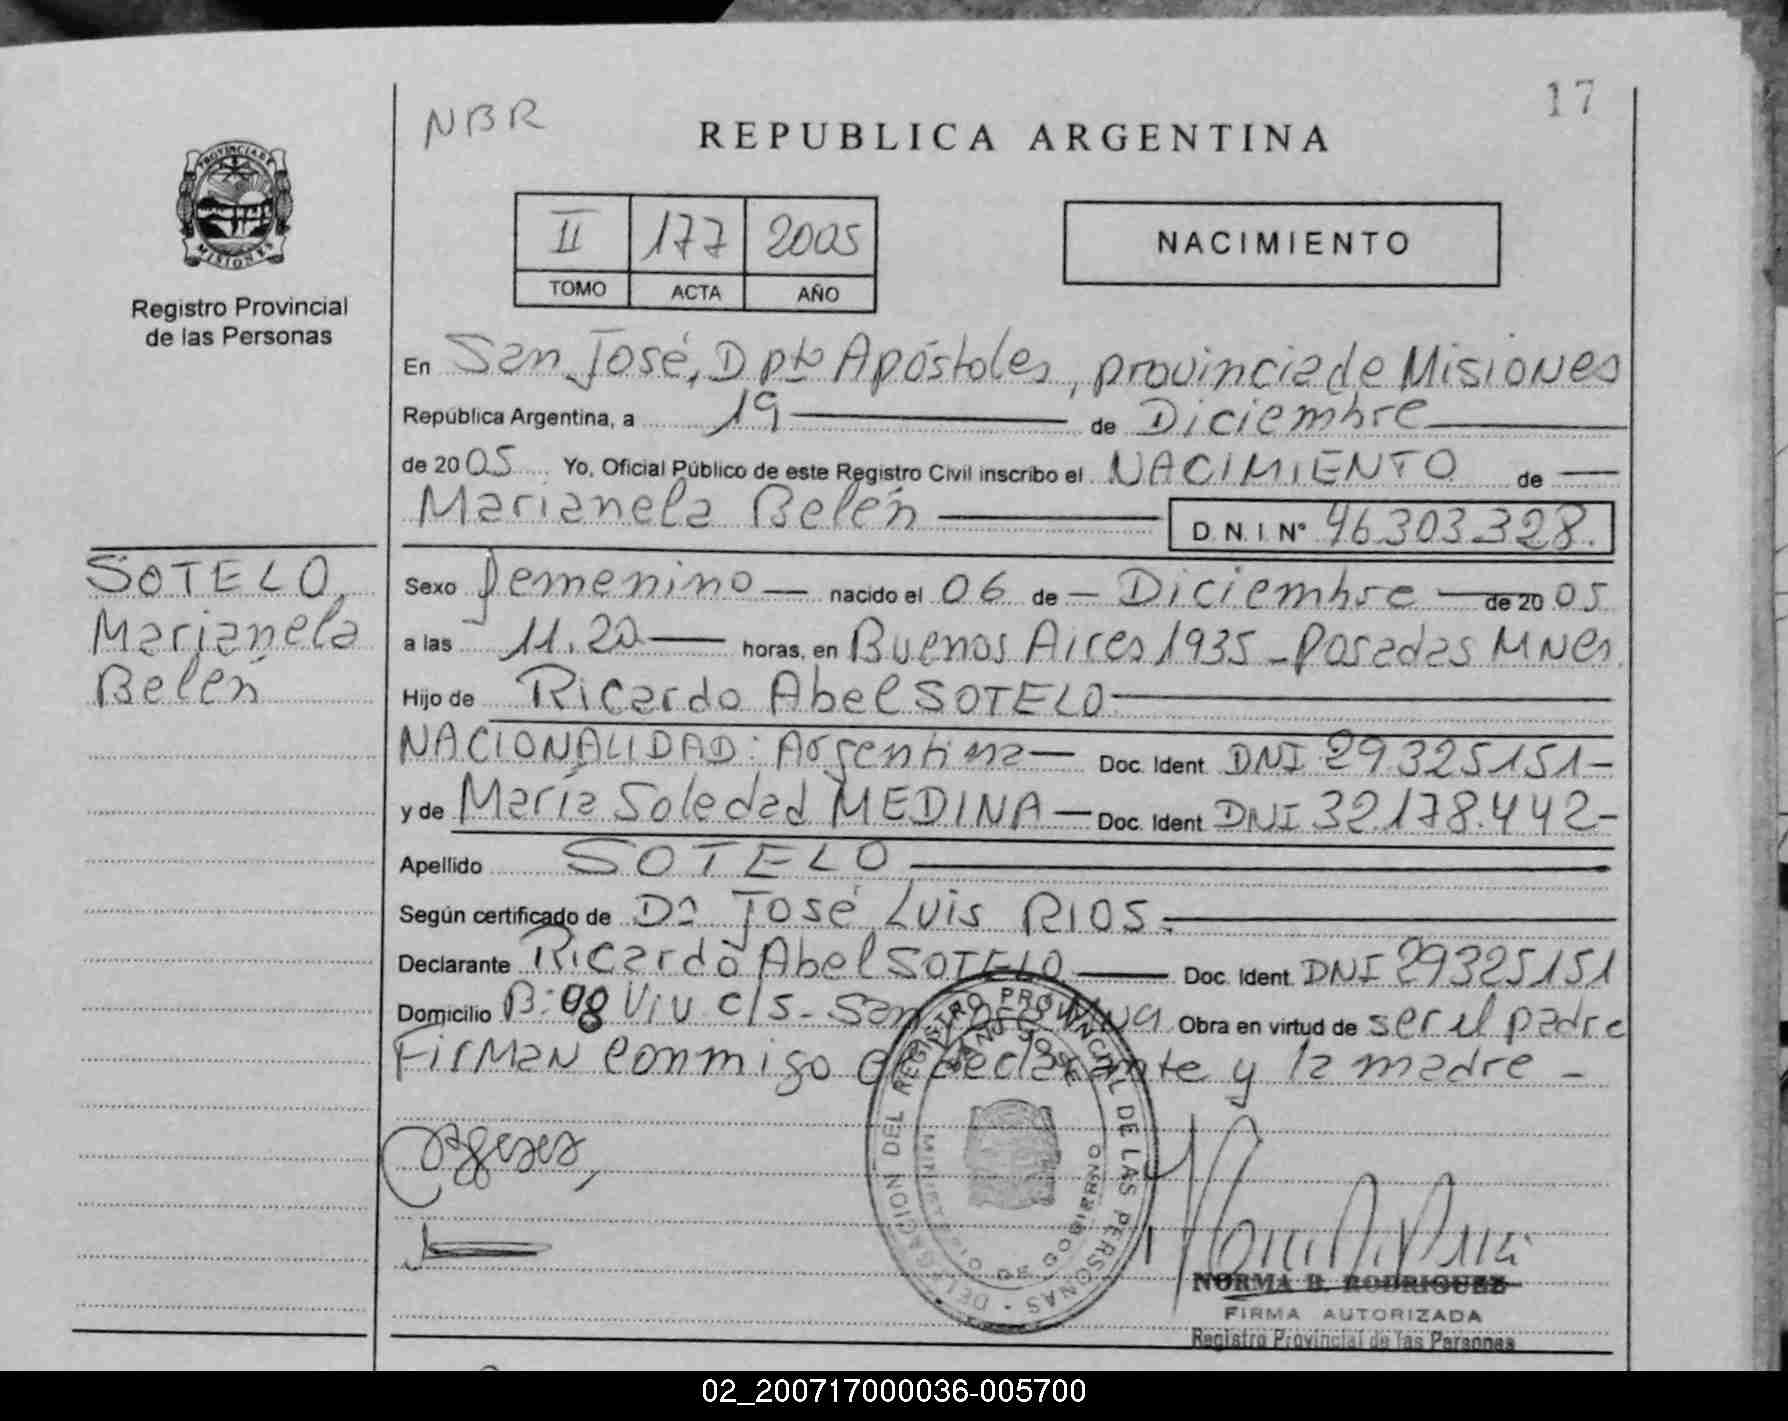 17
NBR
REPUBLICA ARGENTINA
PROVINCIA DE
MISIONES
Registro Provincial
de las Personas
II 177 2005
TOMO ACTA AÑO
NACIMIENTO
En San José, Dpto Apóstoles, provincia de Misiones
República Argentina, a 19 de Diciembre
de 2005 Yo, Oficial Público de este Registro Civil inscribo el NACIMIENTO de
Marianela Belén D.N.I. N° 46.303.328.
SOTELO
Marianela
Belén
Sexo femenino nacido el 06 de Diciembre de 2005
a las 11.20 horas, en Buenos Aires 1935 - Posadas MNes.
Hijo de Ricardo Abel SOTELO
NACIONALIDAD: Argentina Doc. Ident. DNI 29325151-
y de María Soledad MEDINA Doc. Ident. DNI 32.178.442-
Apellido SOTELO
Según certificado de Dr José Luis RIOS.
Declarante Ricardo Abel SOTELO Doc. Ident. DNI 29325151
Domicilio B: 98 Viv c/s - San José Mna Obra en virtud de ser el padre
FirMan conmigo el declarante y la madre -
DELEGACION DEL REGISTRO PROVINCIAL DE LAS PERSONAS -
SAN JOSE
MINISTERIO DE GOBIERNO
NORMA B. RODRIGUEZ
FIRMA AUTORIZADA
Registro Provincial de las Personas
02_200717000036-005700